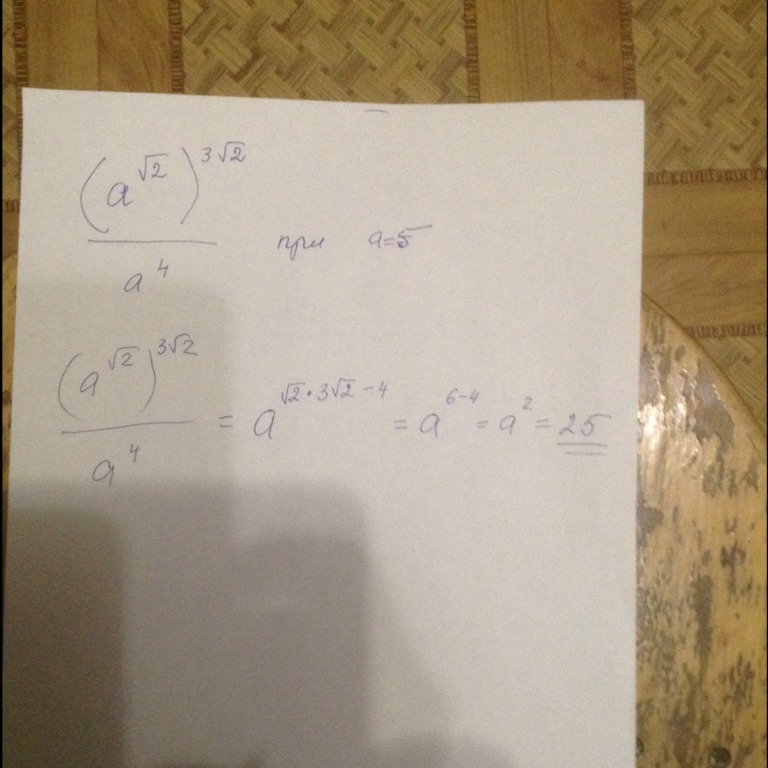 (a^√2)^3√2 / a^4 при a=5
(a^√2)^3√2 / a^4 = a^√2·3√2-4 = a^6-4 = a^2 = 25